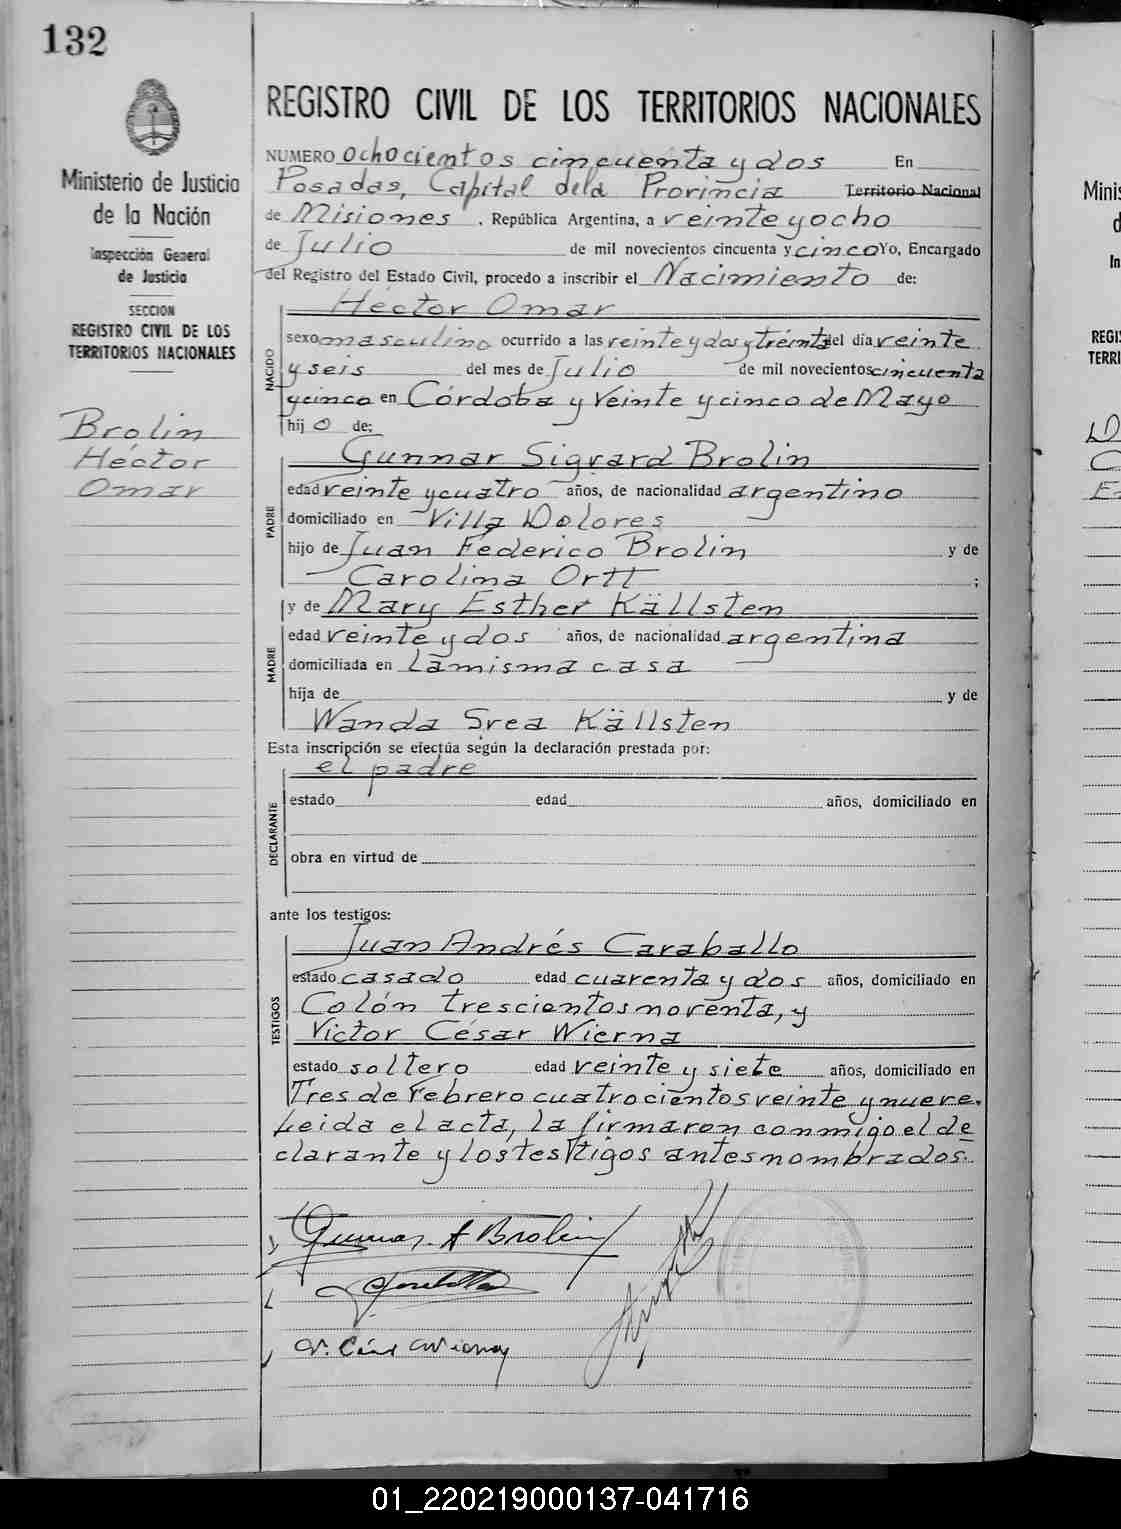 132
Ministerio de Justicia
de la Nación
Inspección General
de Justicia
SECCION
REGISTRO CIVIL DE LOS
TERRITORIOS NACIONALES
Brolin
Héctor
Omar
REGISTRO CIVIL DE LOS TERRITORIOS NACIONALES
NUMERO ochocientos cincuenta y dos En
Posadas, Capital dela Provincia Territorio Nacional
de Misiones, República Argentina, a veinte y ocho
de Julio de mil novecientos cincuenta y cinco Yo, Encargado
del Registro del Estado Civil, procedo a inscribir el Nacimiento de:
Héctor Omar
NACIDO
sexo masculino ocurrido a las veinte y dos y treinta del día veinte
y seis del mes de Julio de mil novecientos cincuenta
y cinco en Córdoba y Veinte y cinco de Mayo
hij o de:
Gunnar Sigvard Brolin
PADRE
edad veinte y cuatro años, de nacionalidad argentino
domiciliado en Villa Dolores
hijo de Juan Federico Brolin y de
Carolina Ortt ;
y de Mary Esther Källsten
MADRE
edad veinte y dos años, de nacionalidad argentina
domiciliada en la misma casa
hija de y de
Wanda Svea Källsten
Esta inscripción se efectúa según la declaración prestada por:
el padre
DECLARANTE
estado edad años, domiciliado en
obra en virtud de
ante los testigos:
Juan Andrés Caraballo
TESTIGOS
estado casado edad cuarenta y dos años, domiciliado en
Colón trescientos noventa, y
Victor César Wierna
estado soltero edad veinte y siete años, domiciliado en
Tres de Febrero cuatrocientos veinte y nueve.
Leida el acta, la firmaron conmigo el de
clarante y los testigos antes nombrados.
Gunnar A Brolin
V. César Wierna
Minis
d
In
REGIS
TERRI
D
C
E
01_220219000137-041716